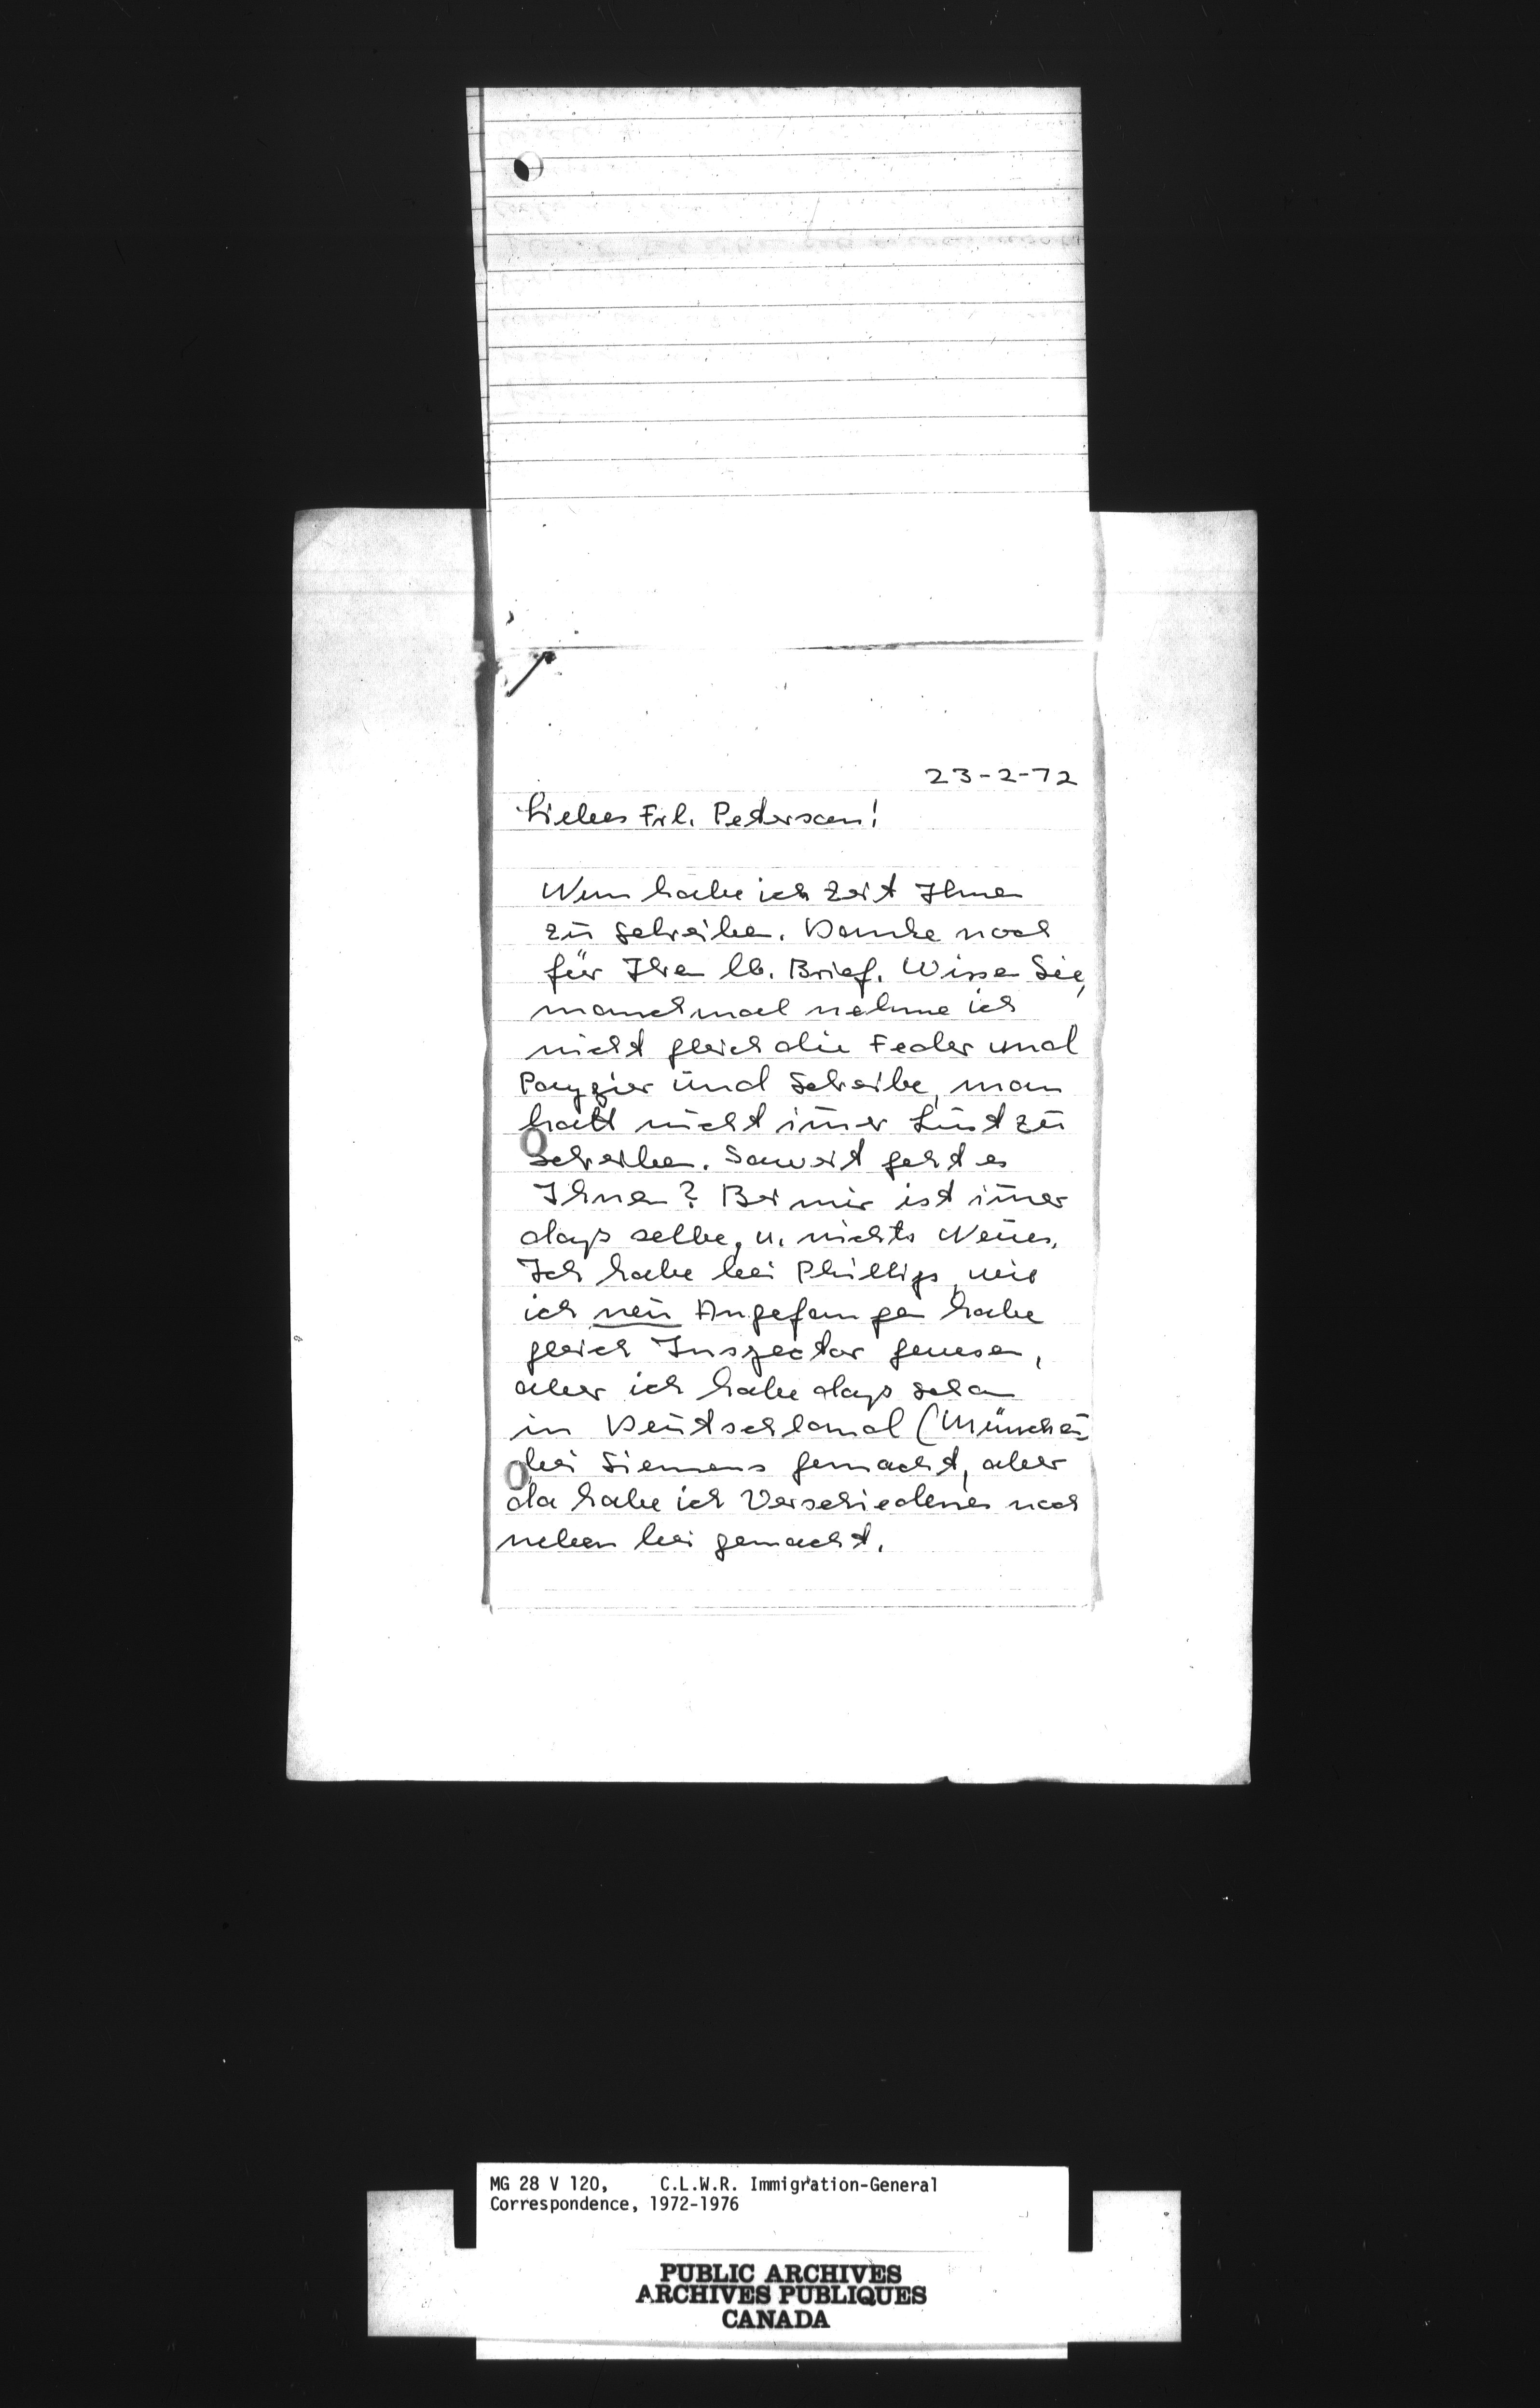 23-2-72
Liebes Frl. Petersen!
Nun habe ich Zeit Ihnen
zu schreiben. Danke noch
für Ihren lb. Brief. Wissen Sie,
manchmal nehme ich
nicht gleich die Feder und
Pappier und Schreibe, man
hatt nicht im̄er Lust zu
schreiben. Soweit geht es
Ihnen? Bei mir ist im̄er
dass selbe, u. nichts Neues.
Ich habe bei Phillips, wie
ich neu Angefangen habe
gleich Inspector gewesen,
aber ich habe dass schon
in Deutschland (München
bei Siemens gemacht, aber
da habe ich Verschiedenes noch
neben bei gemacht.
MG 28 V 120, C.L.W.R. Immigration-General
Correspondence, 1972-1976
PUBLIC ARCHIVES
ARCHIVES PUBLIQUES
CANADA